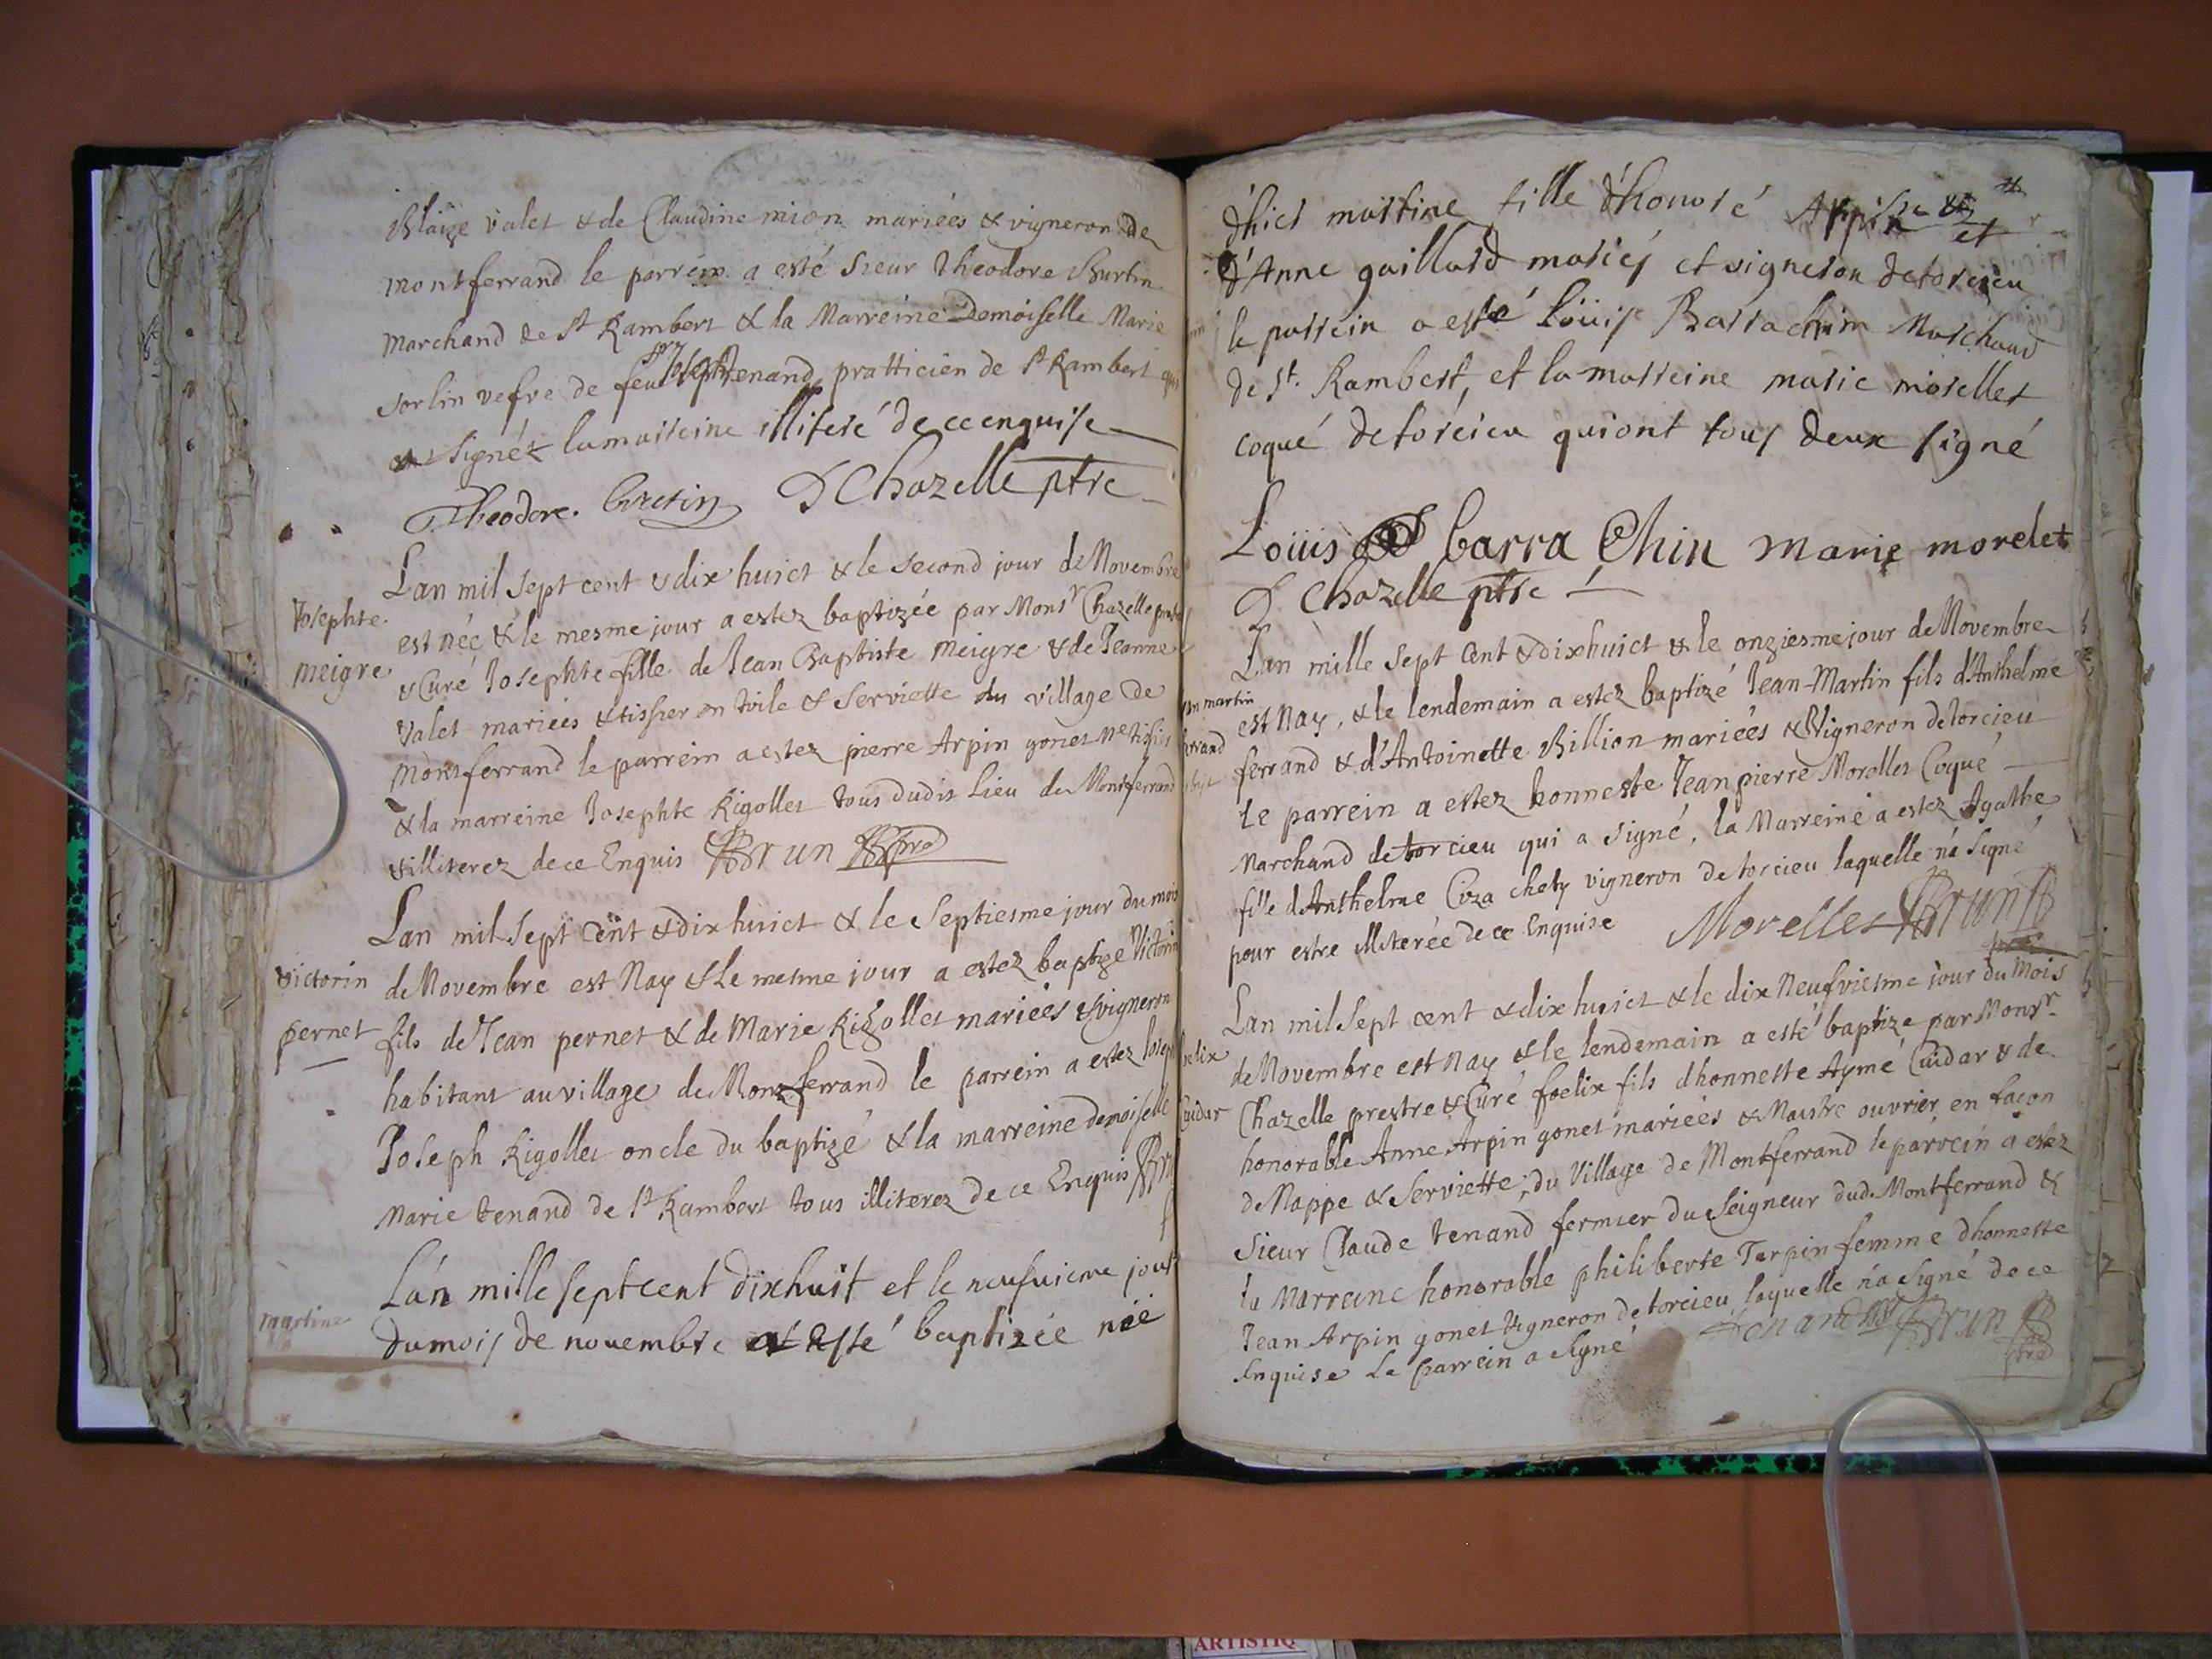 Blaize valet & de Claudine mion mariées & vigneron de
montferrand le parrein a esté sieur Theodore Burtin
marchand de St Rambert & la Marreine Demoiselle Marie
sorlin vefve de feu tenand pratticien de St Rambert qui
a Signé & la marreine illiteré de ce enquise
Theodore. Burtin D Chazelle ptre
Lan mil sept cent & dix huict & le second jour de Novembre
Josephte
est née & le mesme jour a estez baptizée par Monsr Chazelle prestre
meigre
& Curé Josephte fille de Jean Baptiste meigre & de Jeanne
Valet mariées & tissier en toile & serviette du village de
Montferrand le parrein a estez pierre Arpin gonet me tissier
& la marreine Josephte Rigollet tous dudit lieu de Montferrand
& illiterez de ce Enquis Brun pre
Lan mil sept cent & dix huict & le septiesme jour du mois
victorin
de Novembre est Nay & le mesme jour a estez baptize Victorin
pernet
fils de Jean pernet & de Marie Rigollet mariées & vigneron
habitant au village de Montferrand le parrein a estez Joseph
Joseph Rigollet oncle du baptizé & la marreine demoiselle
Marie tenand de St Rambert tous illiterez de ce Enquis
L'an mille sept cent dixhuit et le neufuieme jour
martine
du mois de novembre at esté baptizée née
d'hier martine fille d'honoré Arpin et
d'Anne gaillard mariés et vigneron de torcieu
le parrein a esté Loüis Barrachin Marchand
de St. Rambert, et la marreine marie morellet
coqué de torcieu qui ont tous deux signé
Loüis barra Chin marie morelet
D Chazelle ptre
Lan mille sept cent & dixhuict & le onziesme jour de Novembre
Jean martin
est Nay, & le lendemain a estez baptizé Jean-Martin fils d'Anthelme
ferrand
ferrand & d'Antoinette Billion mariées & Vigneron de torcieu
Le parrein a estez honneste Jean pierre Morellet Coqué
Marchand de torcieu qui a signé, la Marreine a estez Agathe
fille d'Anthelme Ciza chety vigneron de torcieu laquelle n'a signé
pour estre illiterée de ce Enquise Morellet Brun
Lan mil sept cent & dix huict & le dix Neufviesme jour du Mois
felix
de Novembre est Nay & le lendemain a esté baptize par Monsr
Cuidar
Chazelle prestre & Curé foelix fils dhonneste Aymé Cuidar & de
honorable Anne Arpin gonet mariées & Maistre ouvrier en façon
de Nappe & Serviette, du Village de Montferrand le parrein a estez
sieur Claude tenand fermier du Seigneur dud. Montferrand &
la Marreine honorable philiberte Tarpin femme dhonneste
Jean Arpin gonet vigneron de torcieu laquelle n'a signé de ce
Enquise Le parrein a signé Tenand Brun pre
ARTISTIQ